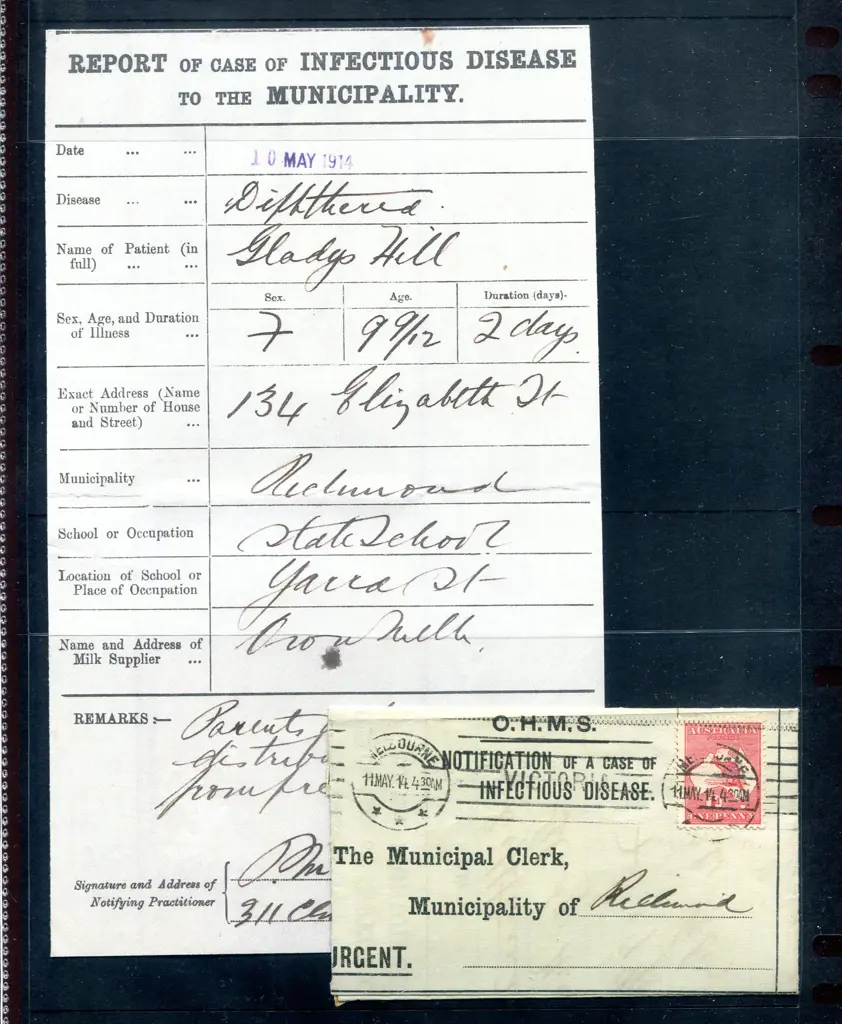 REPORT OF CASE OF INFECTIOUS DISEASE
TO THE MUNICIPALITY.
Date ... ...
10 MAY 1914
Disease ... ...
Diphtheria.
Name of Patient (in
full) ... ...
Gladys Hill
Sex, Age, and Duration
of Illness ...
Sex. Age. Duration (days).
F 9 9/12 2 days
Exact Address (Name
or Number of House
and Street) ...
134 Elizabeth St
Municipality ...
Richmond
School or Occupation
State School
Location of School or
Place of Occupation
Yarra St
Name and Address of
Milk Supplier ...
REMARKS :—
Parents
distrib
Signature and Address of
Notifying Practitioner
311
O.H.M.S.
NOTIFICATION OF A CASE OF
INFECTIOUS DISEASE.
VICTORIA
MELBOURNE
11 MAY. 14 4 30AM
AUSTRALIA
ONE PENNY
MELBOURNE
11 MAY. 14 4 30AM
The Municipal Clerk,
Municipality of Richmond
URGENT.